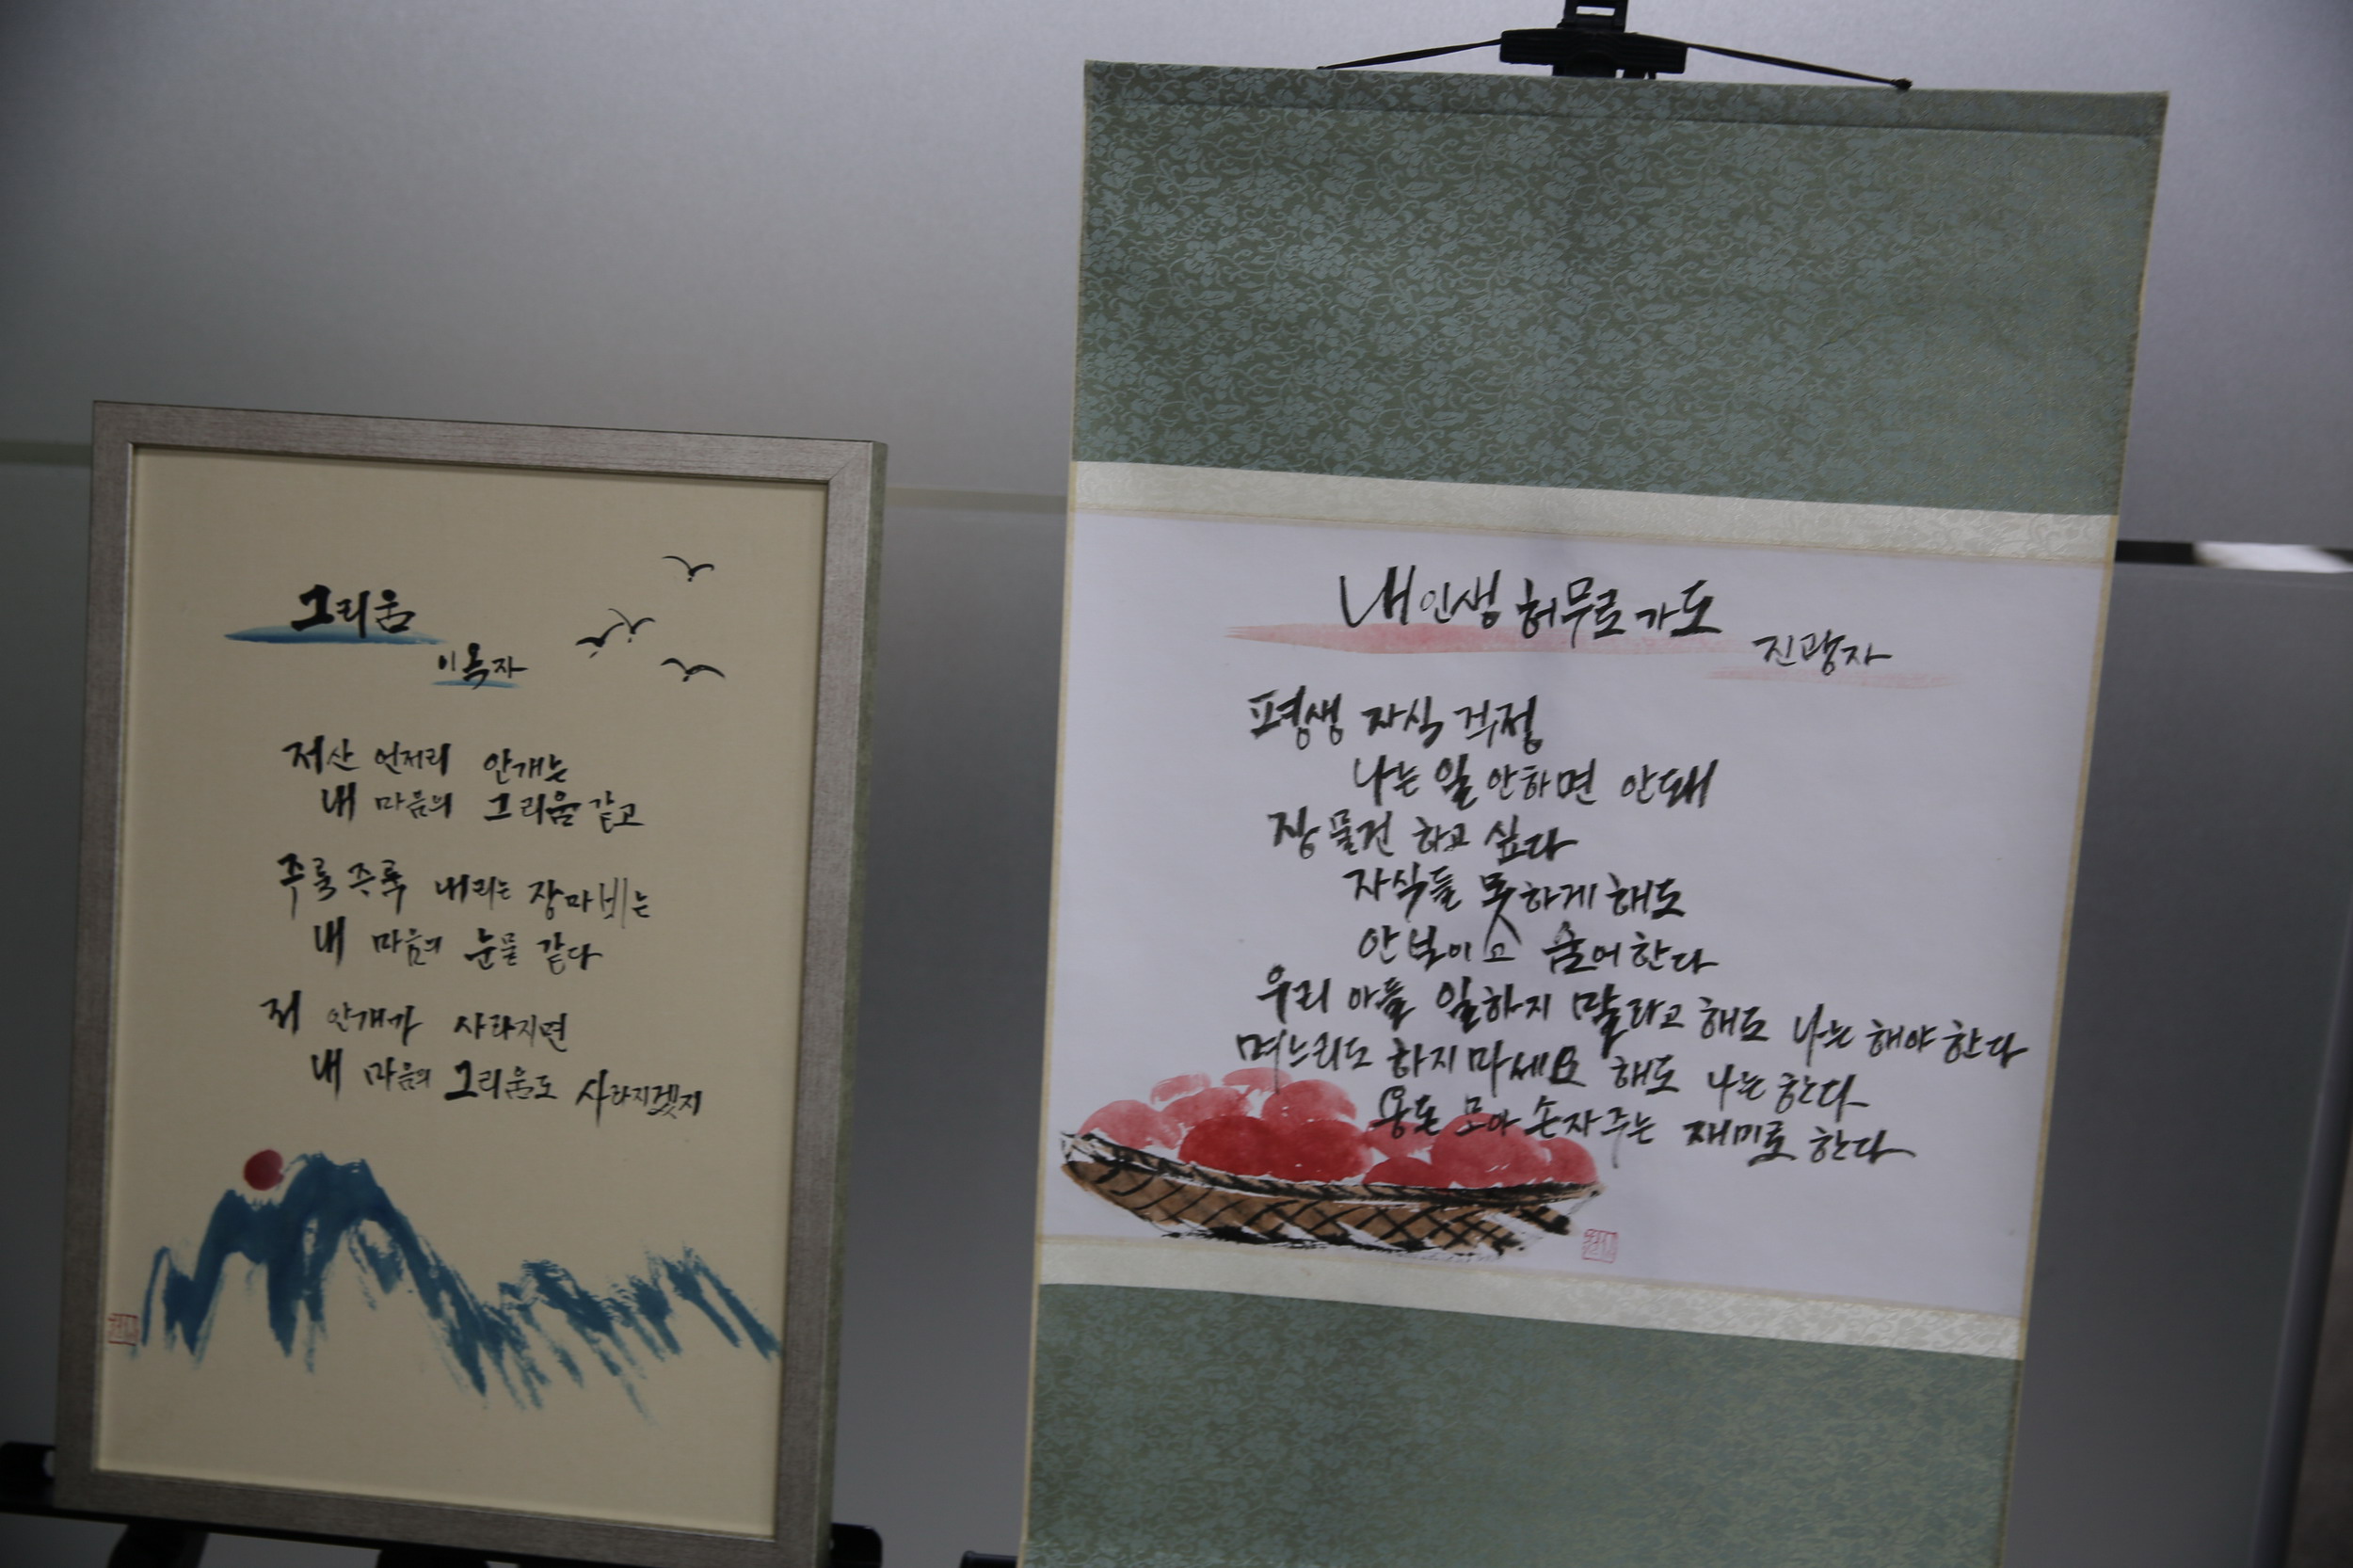 그리움
이옥자
저산 언저리 안개는
내 마음의 그리움 같고
주룩주룩 내리는 장마비는
내 마음의 눈물 같다
저 안개가 사라지면
내 마음의 그리움도 사라지겠지
내 인생 허무로 가도
진광자
평생 자식 걱정
나는 일 안하면 안돼
장 물건 하고 싶다
자식들 못하게 해도
안 보이고 숨어한다
우리 아들 일하지 말라고 해도 나는 해야 한다
며느리도 하지마세요 해도 나는 한다
용돈 모아 손자 주는 재미로 한다